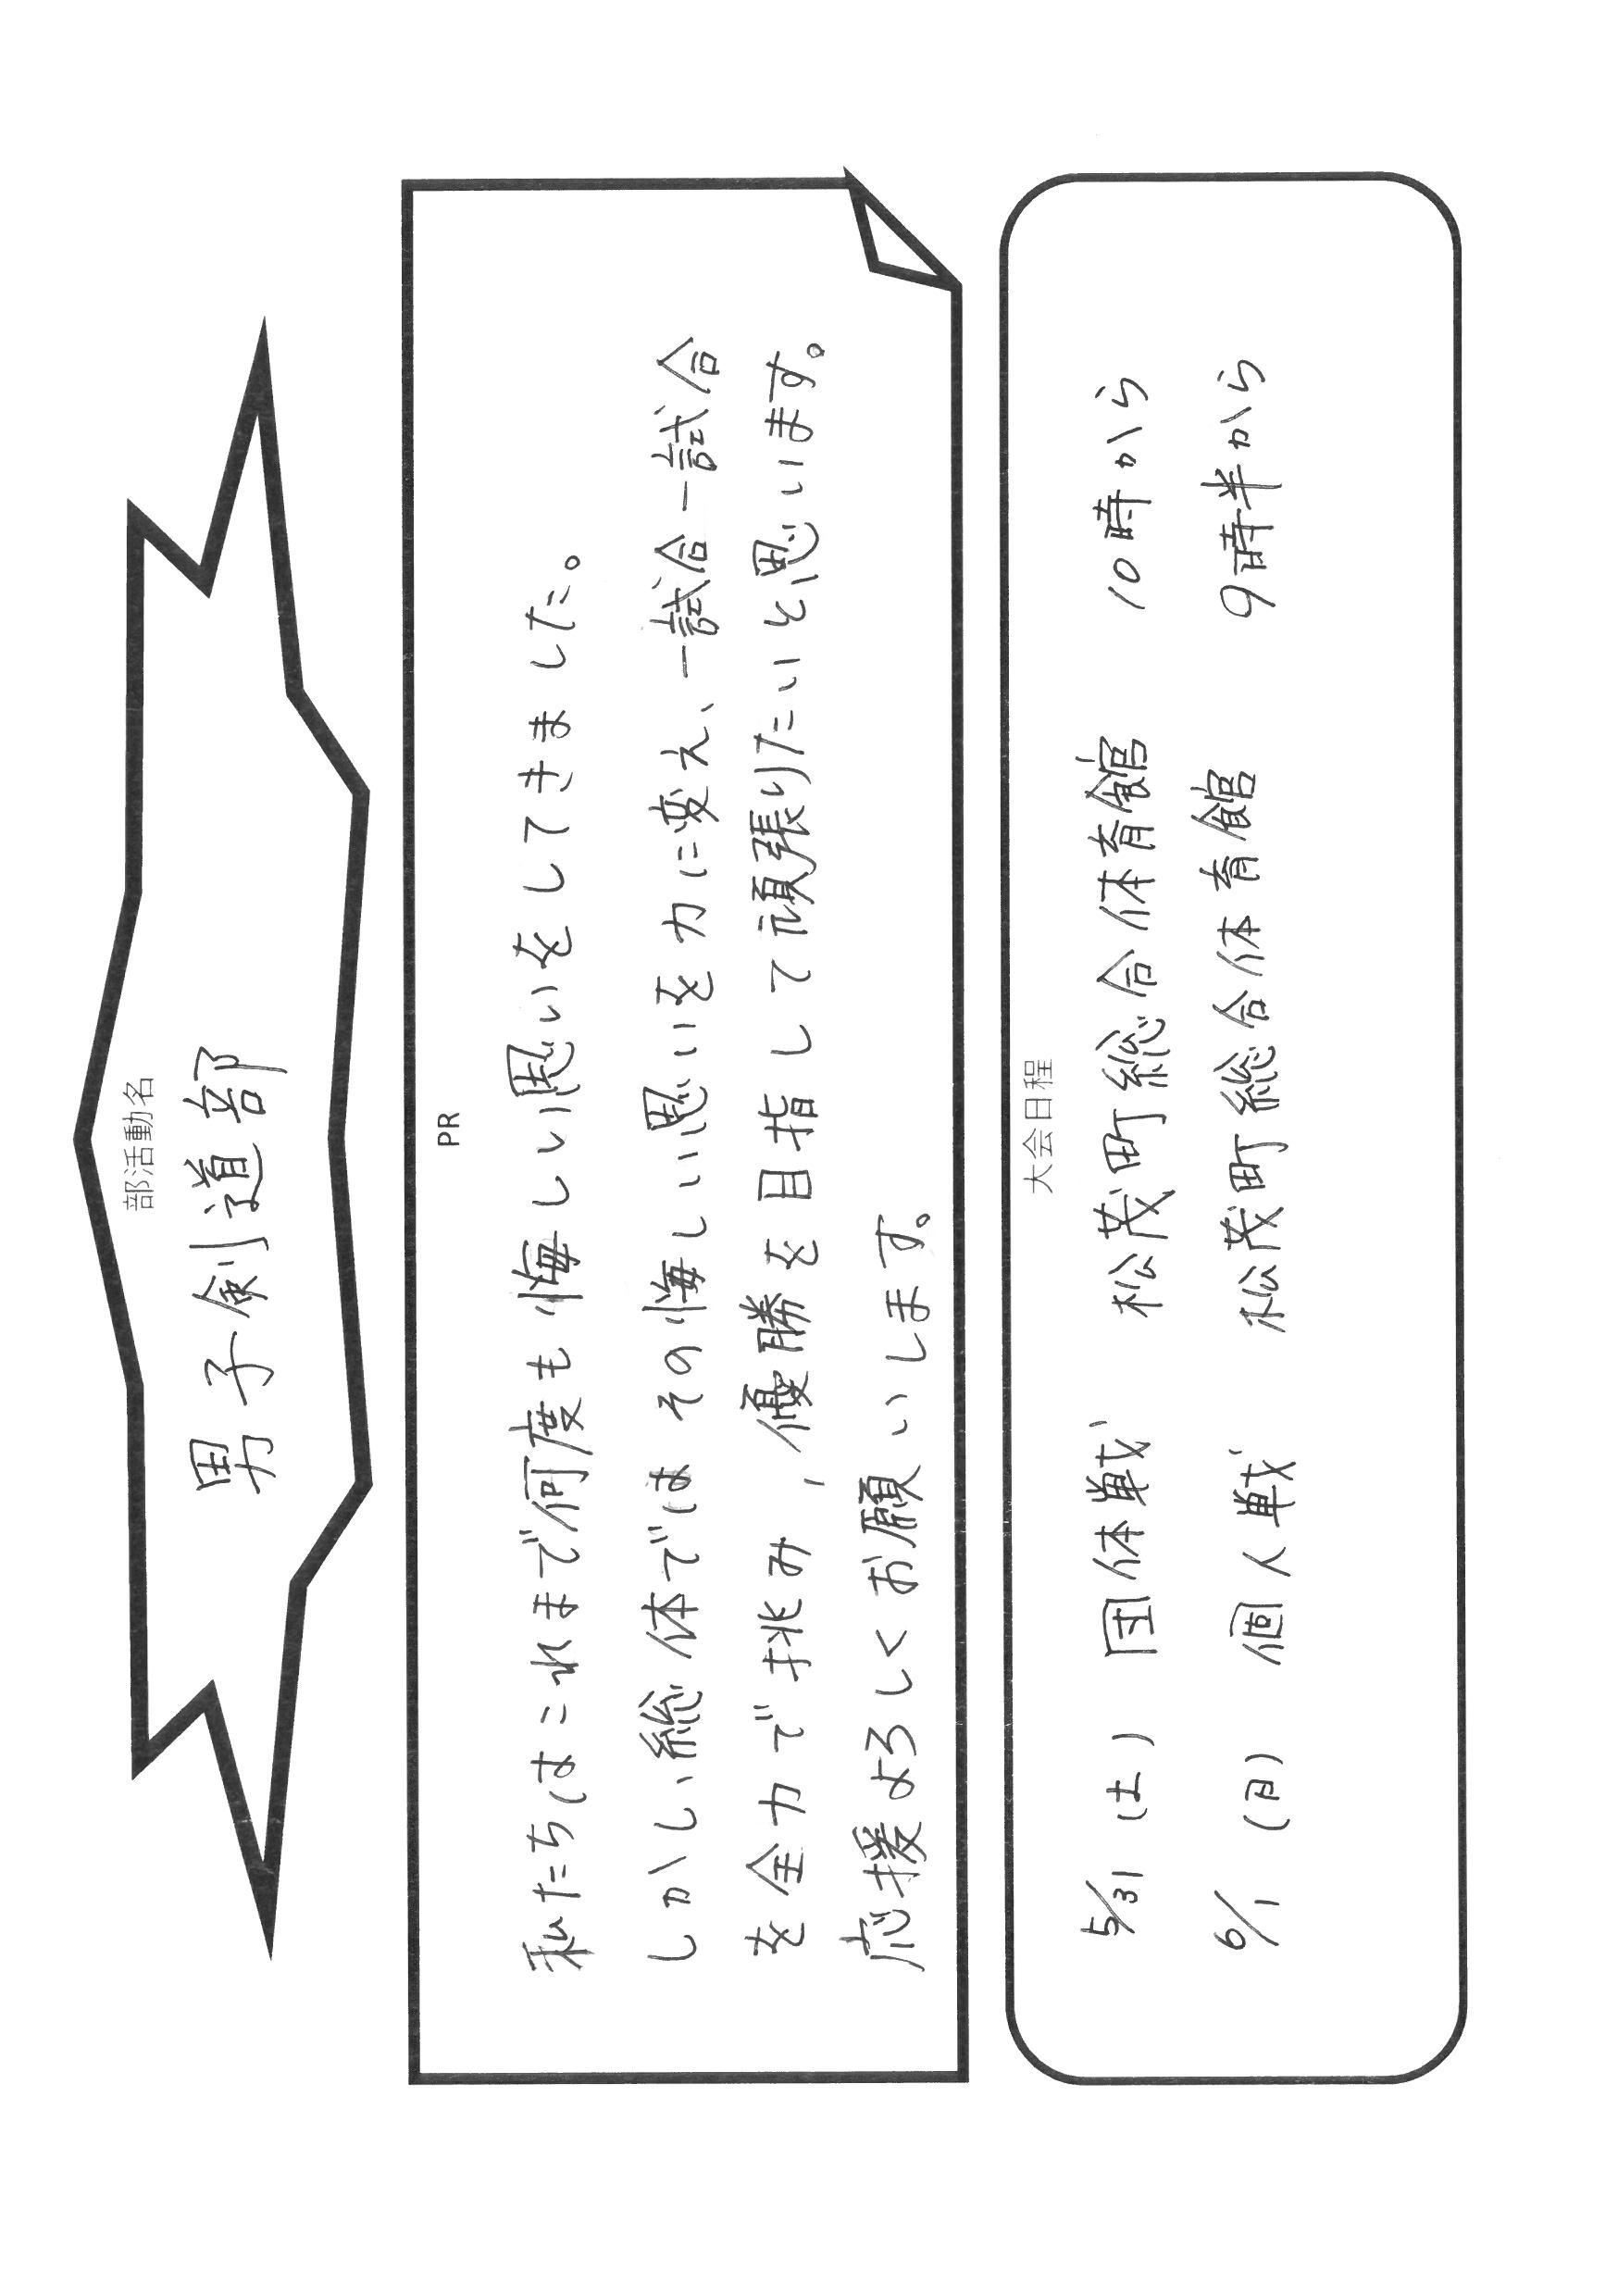 部活動名
男子剣道部
PR
私たちはこれまで何度も悔しい思いをしてきました。
しかしい総体ではその悔しい思いを力に変え、一試合一試合
を全力で挑み、優勝を目指して頑張りたいと思います。
応援よろしくお願いします。
大会日程
5/31 (土) 団体戦 松茂町総合体育館 10時から
6/1 (日) 個人戦 松茂町総合体育館 9時半から